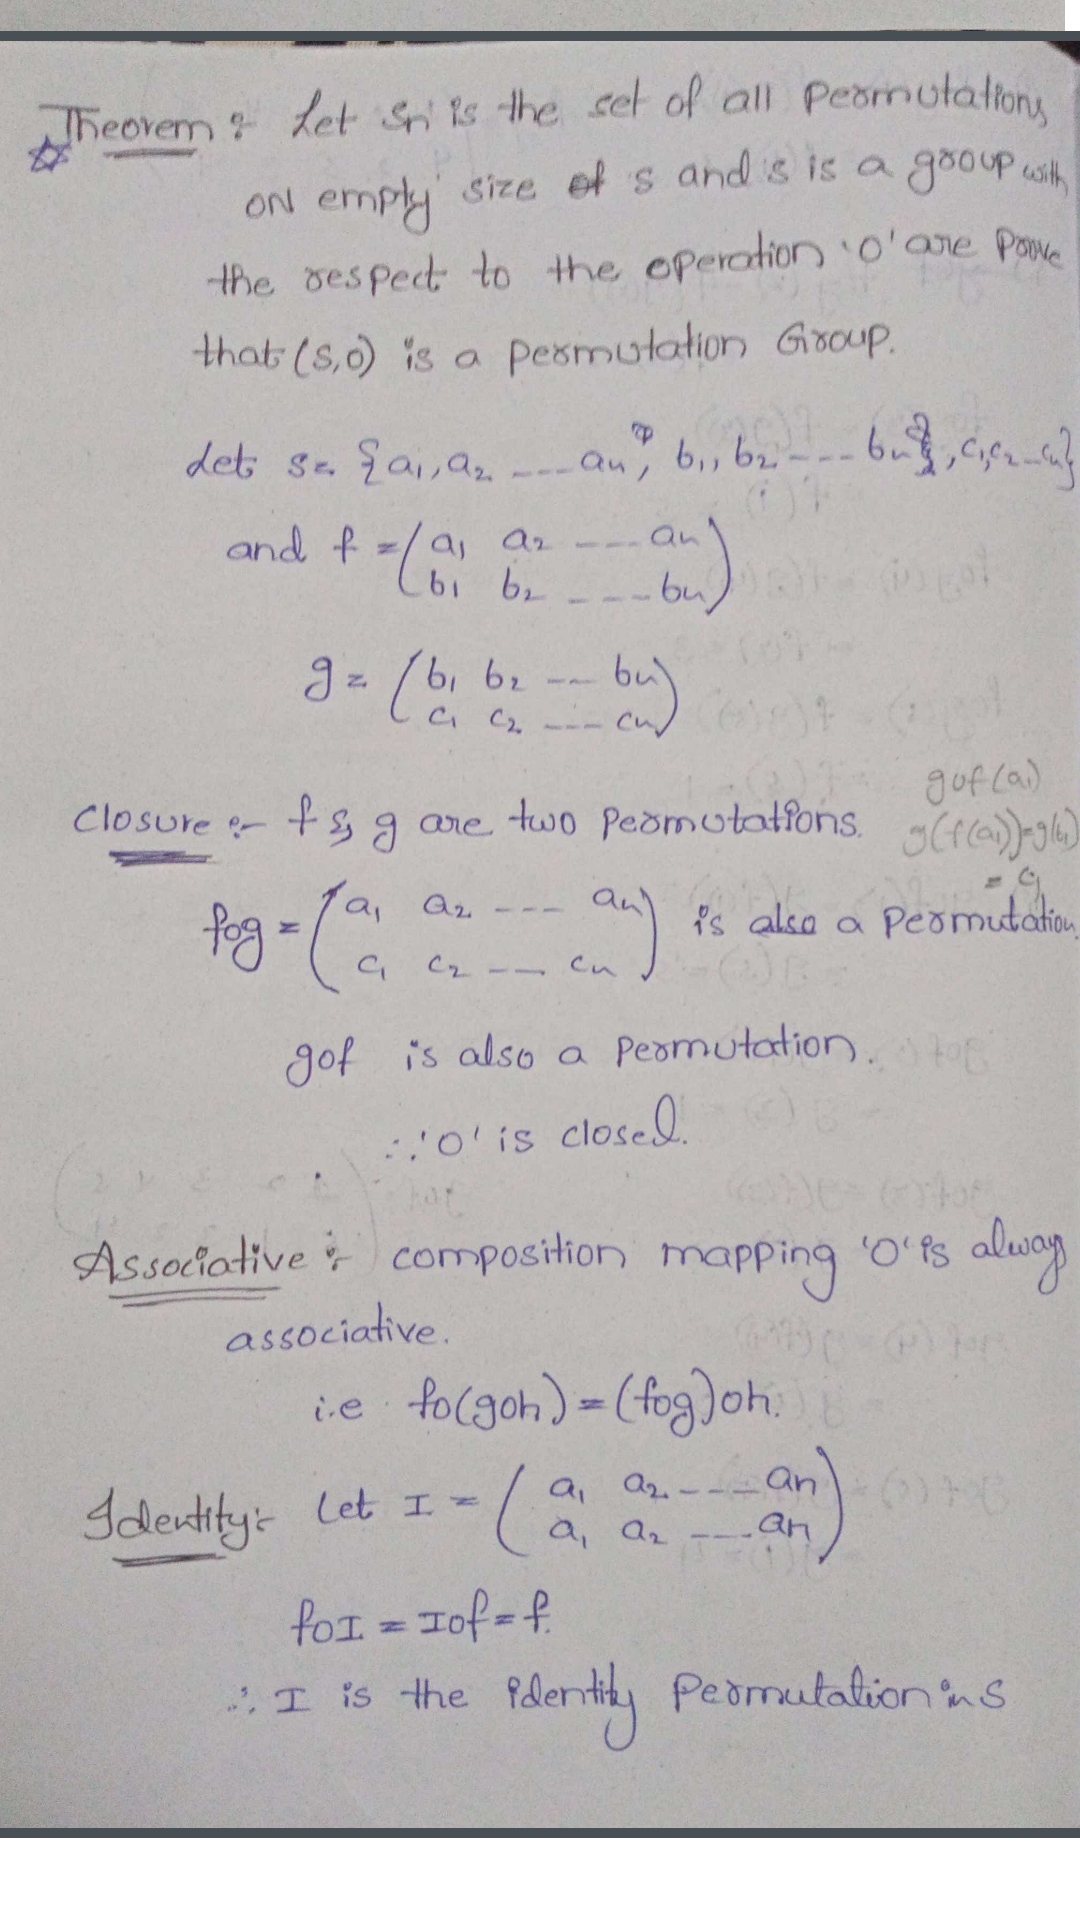 Theorem :- Let Sn is the set of all permutations
on empty size of s and s is a group with
the respect to the operation 'o' are Prove
that (S,o) is a permutation Group.
Let S = {a₁, a₂ ---- an, b₁, b₂ ---- bn, c₁, c₂ -- cn}
and f = (a₁ a₂ ---- an)
(b₁ b₂ ---- bn)
g = (b₁ b₂ --- bn)
(c₁ c₂ ---- cn)
gof(a₁)
Closure :- f & g are two permutations. g(f(a₁))=g(b₁)
= c₁
fog = (a₁ a₂ ---- an) is also a permutation.
(c₁ c₂ ---- cn)
gof is also a permutation.
∴ 'o' is closed.
Associative :- composition mapping 'o' is always
associative.
i.e fo(goh) = (fog)oh.
Identity :- Let I = (a₁ a₂ ---- an)
(a₁ a₂ ---- an)
foI = Iof = f.
∴ I is the identity Permutation in S